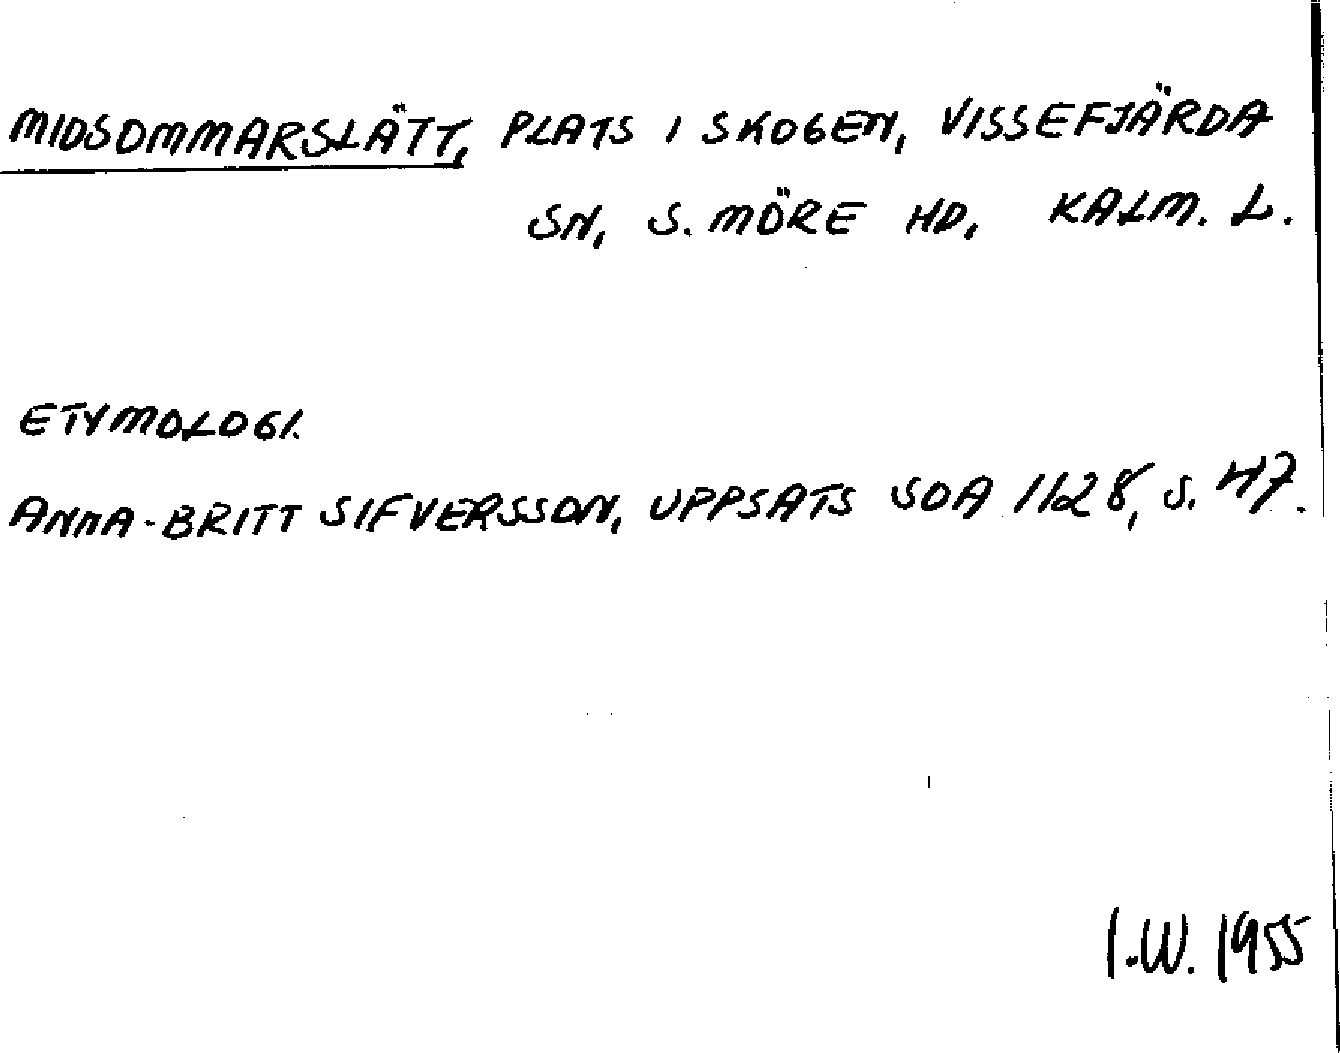 MIDSOMMARSLÄTT, PLATS I SKOGEN, VISSEFJÄRDA
SN, S. MÖRE HD, KALM. L.
ETYMOLOGI.
ANNA-BRITT SIFVERSSON, UPPSATS SOA 1128, S. 47.
I.W. 1955